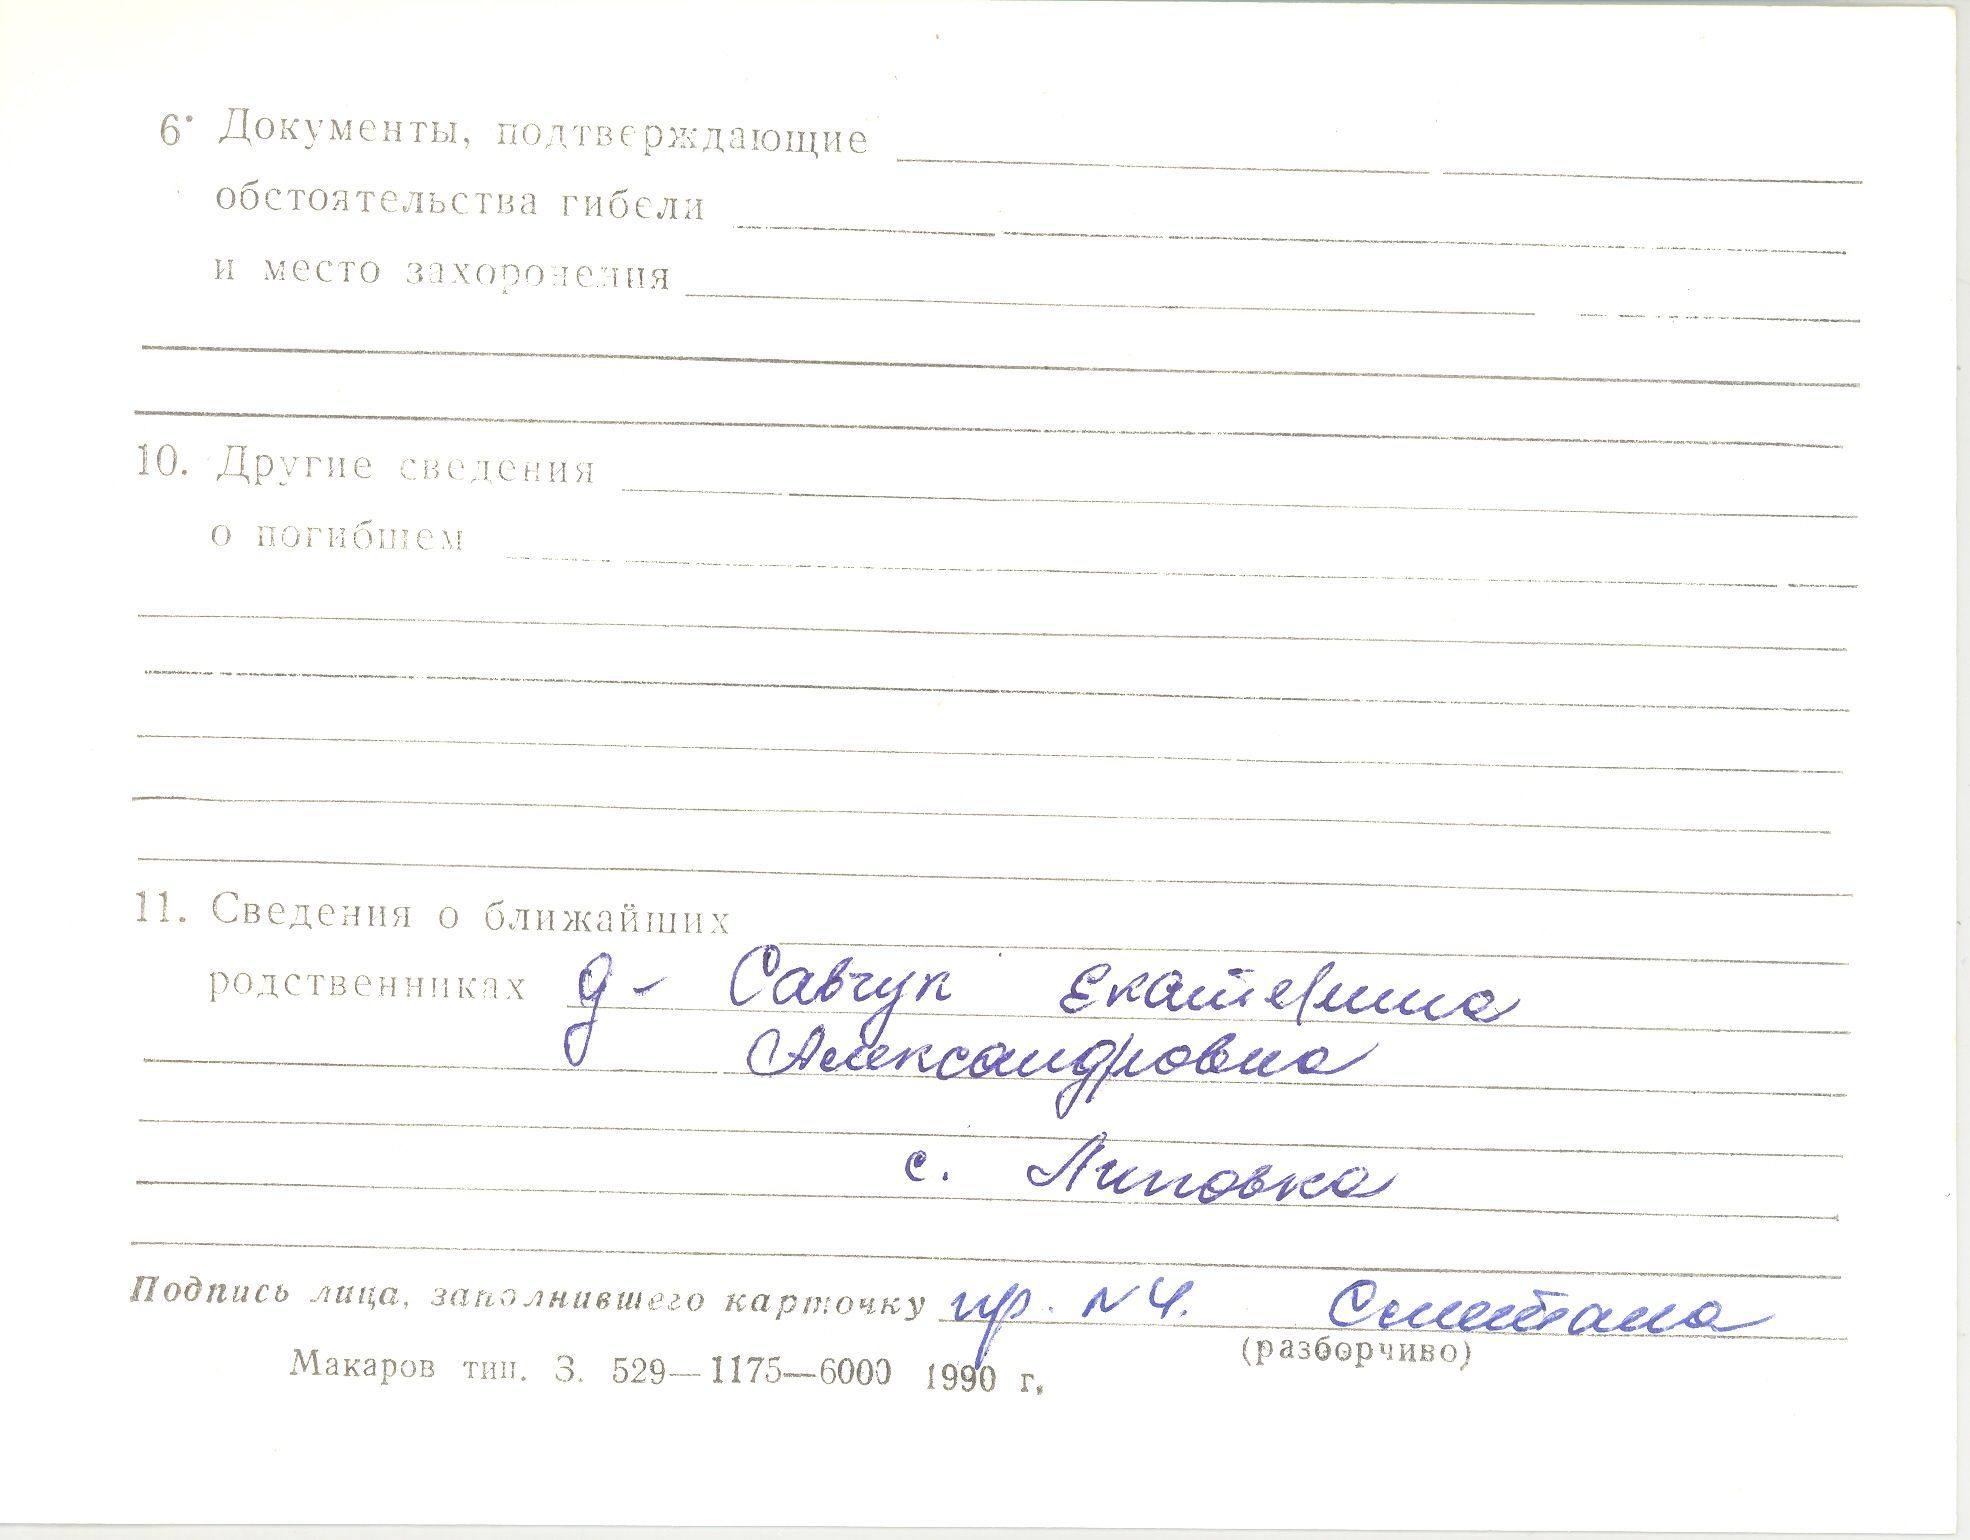 6. Документы, подтверждающие
обстоятельства гибели
и место захоронения
10. Другие сведения
о погибшем
11. Сведения о ближайших
родственниках д- Савчук Екатерина
Александровна
с. Липовка
Подпись лица, заполнившего карточку пр. N4. Сметана
(разборчиво)
Макаров тип. З. 529—1175—6000 1990 г.